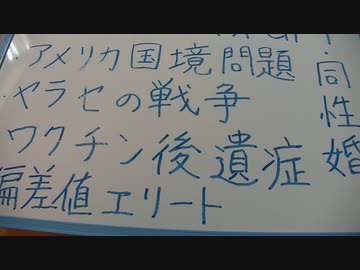 ・アメリカ国境問題
・ヤラセの戦争
ワクチン後遺症
偏差値エリート
・同性婚